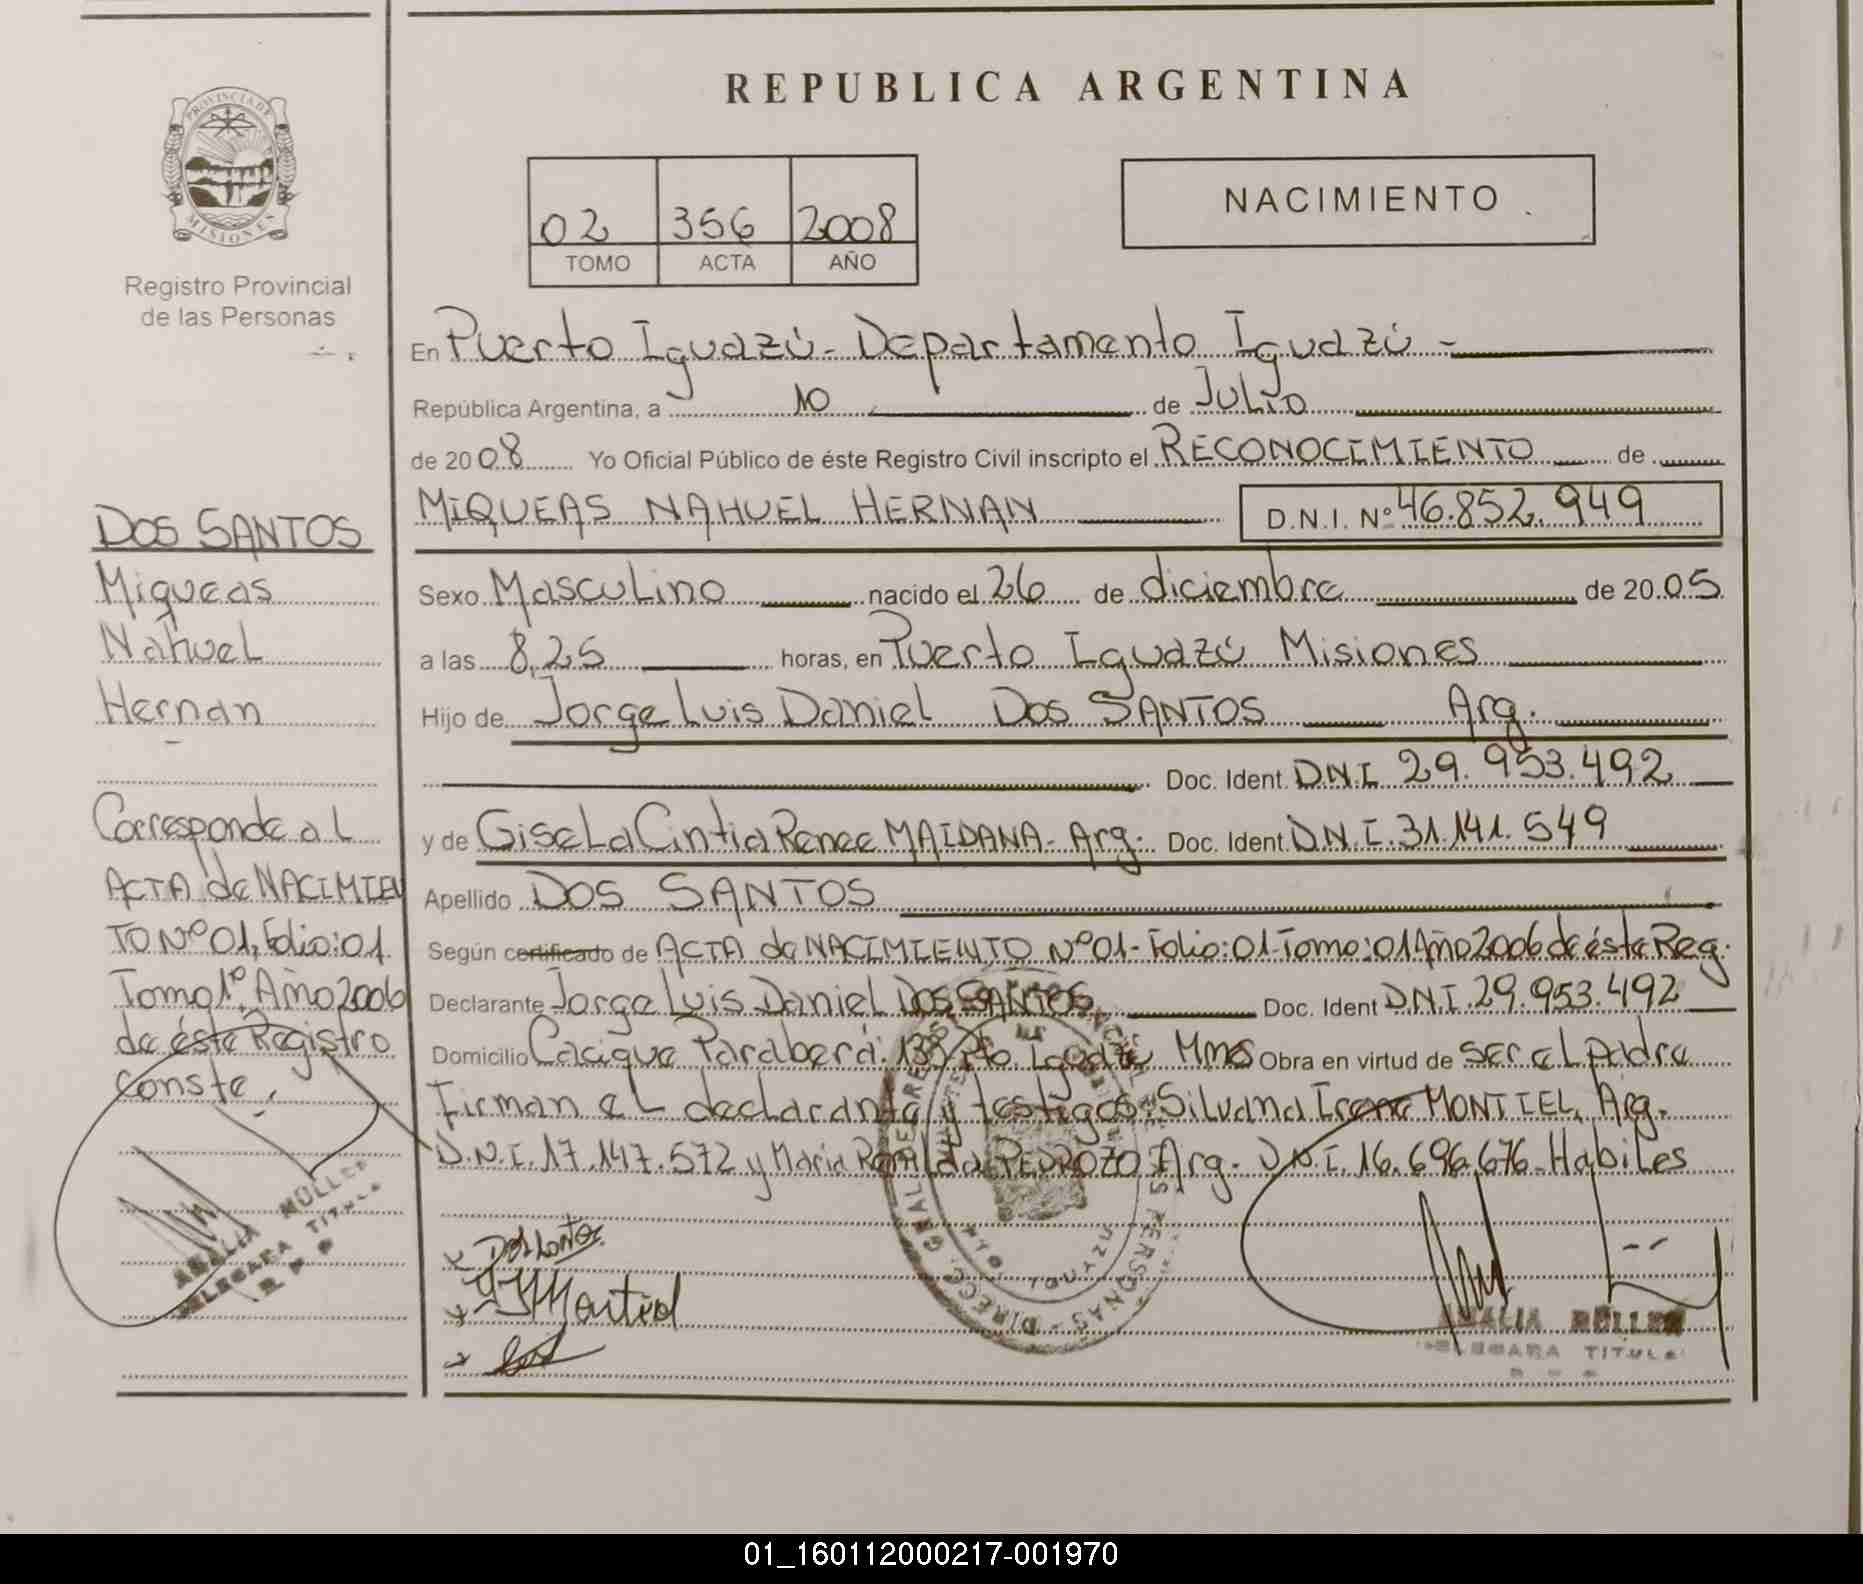 REPUBLICA ARGENTINA
PROVINCIA DE
MISIONES
Registro Provincial
de las Personas
02 356 2008
TOMO ACTA AÑO
NACIMIENTO
En Puerto Iguazú - Departamento Iguazú -
República Argentina, a 10 de Julio
de 2008 Yo Oficial Público de éste Registro Civil inscripto el RECONOCIMIENTO de
MIQUEAS NAHUEL HERNAN D.N.I. Nº 46.852.949
Sexo Masculino nacido el 26 de diciembre de 2005
a las 8,25 horas, en Puerto Iguazú Misiones
Hijo de Jorge Luis Daniel DOS SANTOS Arg.
Doc. Ident. D.N.I. 29.953.492
y de Gisela Cintia Renee MAIDANA - Arg. Doc. Ident D.N.I. 31.141.549
Apellido DOS SANTOS
Según certificado de ACTA de NACIMIENTO Nº 01 - Folio: 01 - Tomo: 01 Año 2006 de éste Reg.
Declarante Jorge Luis Daniel DOS SANTOS Doc. Ident D.N.I. 29.953.492
Domicilio Cacique Paraberá: 138 Pto. Iguazú Mnes Obra en virtud de ser el Padre
Firman el declarante y testigos: Silvana Irene MONTIEL, Arg.
D.N.I. 17.147.572 y Maria PEDROZO Arg. D.N.I. 16.696.676 - Habiles
DOS SANTOS
Miqueas
Nahuel
Hernan
Corresponde al
ACTA de NACIMIEN
TO Nº 01, Folio: 01.
Tomo 1º, Año 2006
de éste Registro
Conste.-
AMALIA MÜLLER
DELEGADA TITULAR
Dos Santos
Montiel
DIRECC. GRAL DE PERSONAS
AMALIA MÜLLER
DELEGADA TITULAR
01_160112000217-001970